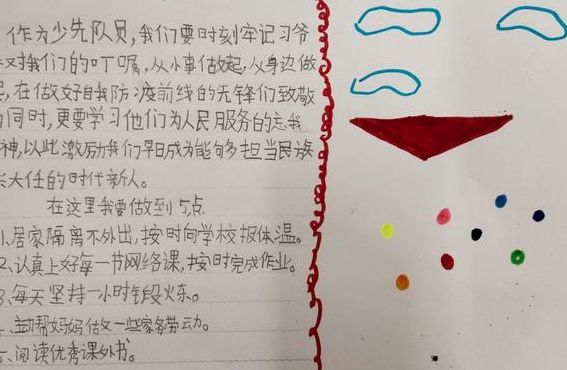 作为少先队员,我们要时刻牢记习爷
对我们的叮嘱,从小事做起,从身边做
起,在做好自我防疫前线的先锋们致敬
的同时,更要学习他们为人民服务的忘我
神,以此激励我们早日成为能够多担当民族
大任的时代新人。
在这里我要做到5点
1、居家隔离不外出,按时向学校报体温。
2、认真上好每一节网络课,按时完成作业。
3、每天坚持一小时锻火炼。
主动帮妈妈做一些家务劳动。
阅读优秀课外书。